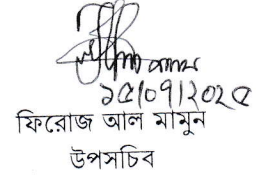 ১৫/০৭/২০২৫
ফিরোজ আল মামুন
উপসচিব